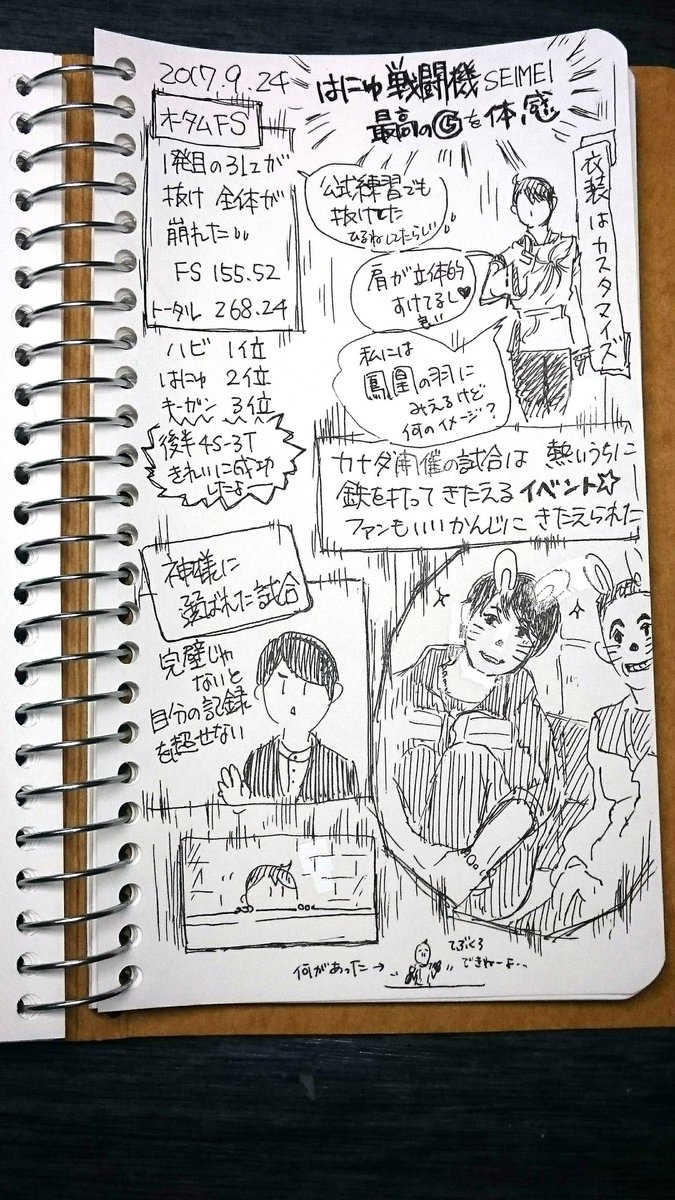 2017.9.24
はにゅ戦闘機SEIMEI
最高のGを体感
オータムFS
1発目の3Lzが
抜け 全体が
崩れた
FS 155.52
トータル 268.24
ハビ 1位
はにゅ 2位
キーガン 3位
後半4S-3T
きれいに成功
したよー
公式練習でも
抜けてた
ひるねしてたらしい
肩が立体的
すけてるし♥
私には
鳳凰の羽に
みえるけど
何のイメージ?
衣装はカスタマイズ
カナダ開催の試合は 熱いうちに
鉄を打ってきたえるイベント☆
ファンもいいかんじにきたえられた
神様に
選ばれた試合
完璧じゃ
ないと
自分の記録
を超せない
何があった→
てぶくろ
できねーよ..